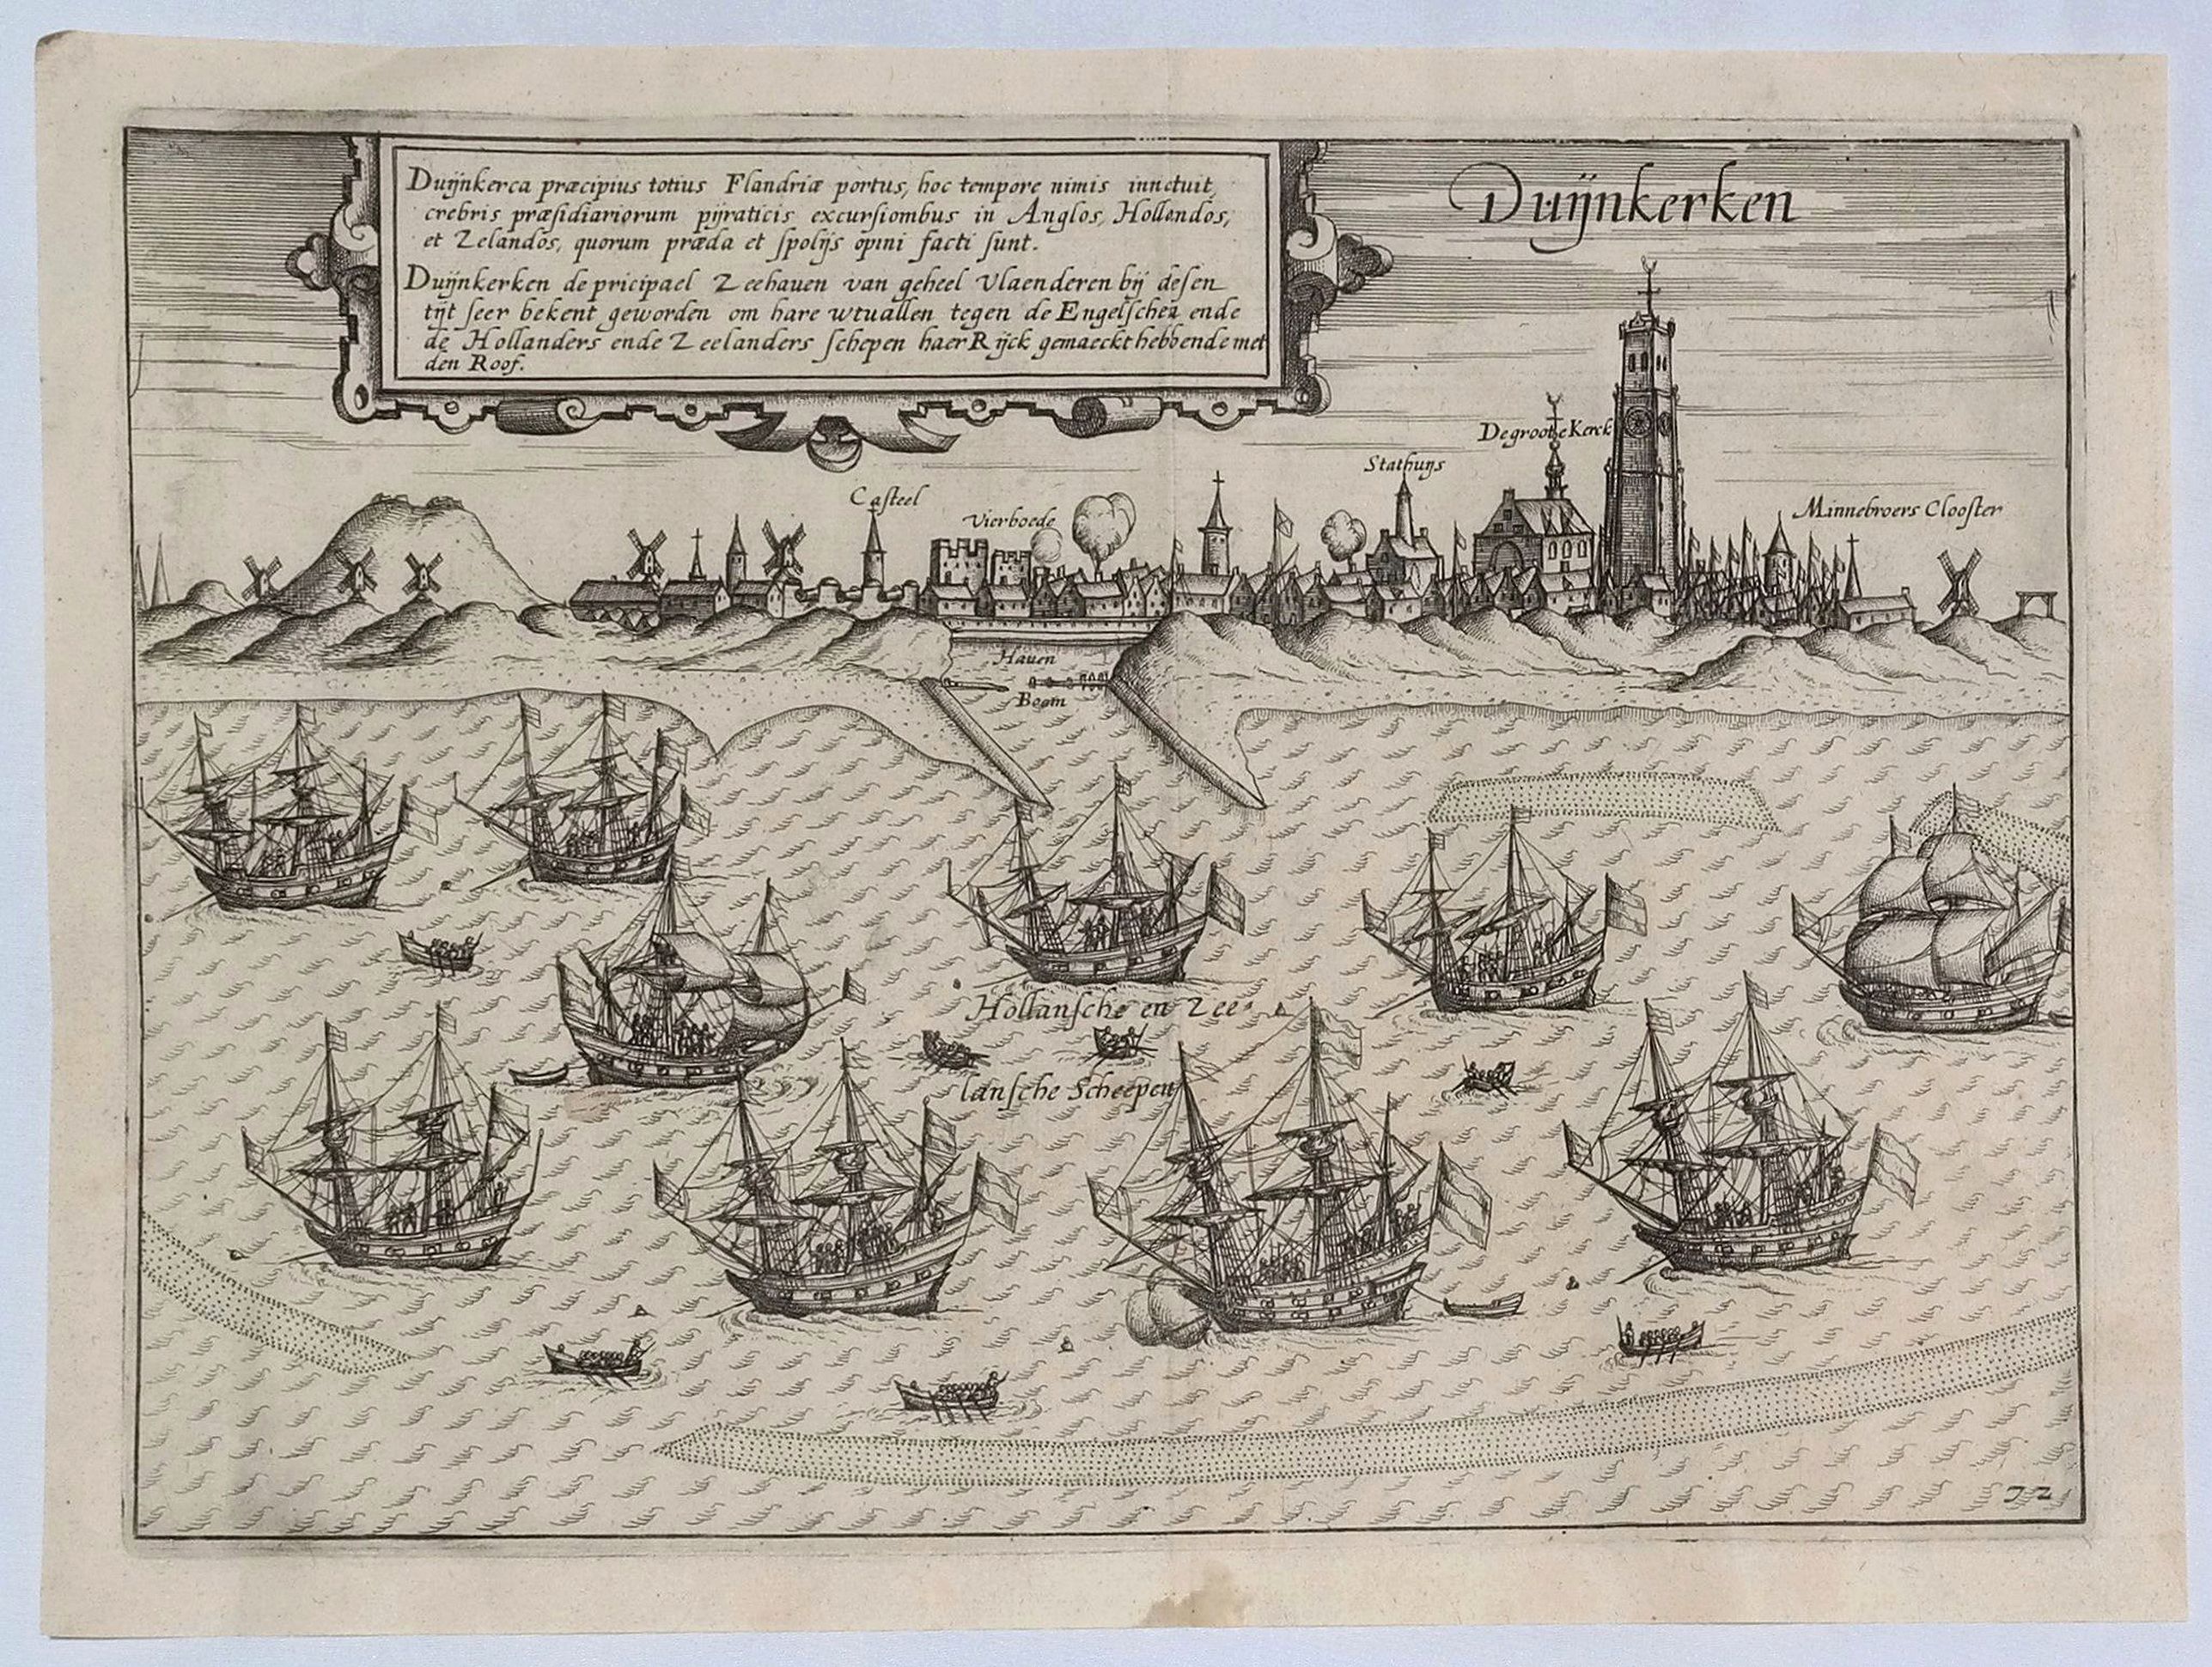 Duijnkerca præcipius totius Flandriæ portus, hoc tempore nimis innctuit,
crebris præsidiariorum pijraticis excursiombus in Anglos, Hollandos,
et Zelandos, quorum præda et spolijs opini facti sunt.
Duijnkerken de pricipael Zeehauen van geheel Vlaenderen bij desen
tijt seer bekent geworden om hare wtuallen tegen de Engelschen ende
de Hollanders ende Zeelanders schepen haer Rijck gemaeckt hebbende met
den Roof.
Duijnkerken
De groote Kerck
Stathuijs
Casteel
Vierboede
Minnebroers Clooster
Hauen
Boom
Hollansche en Zee-
lansche Scheepen
72